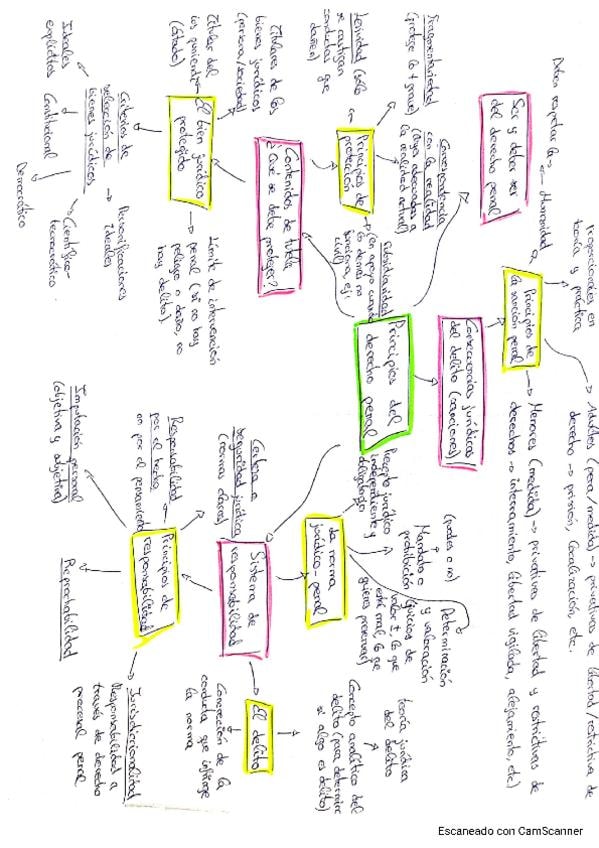 Principios del
derecho penal
Ser y deber ser
del derecho penal
Contenidos de tutela
¿Qué se debe proteger?
Principios de
protección
Fragmentariedad
(protege lo + grave)
Lesividad (solo
se castigan
conductas que
dañen)
Correspondencia
con la realidad
(leyes adecuadas a
la realidad actual)
Subsidiariedad
(en apoyo cuando
lo demás no
funciona, ej:
civil)
El bien jurídico
protegido
Titulares de los
bienes jurídicos
(persona/sociedad)
Titular del
ius puniendi
(Estado)
Criterios de
selección de
bienes jurídicos
Ideales
explícitos
Constitucional
Democrático
Científico-
tecnocrático
Personificaciones
ideales
Límite de intervención
penal (si no hay
peligro o daño, no
hay delito)
Consecuencias jurídicas
del delito (sanciones)
Principios de
la sanción penal
Humanidad
Deben respetar la
proporcionales en
teoría y práctica
Adultos (pena/medida) → privativas de libertad/restrictiva de
derecho → prisión, localización, etc.
Menores (medida) → privativas de libertad y restrictivas de
derechos → internamiento, libertad vigilada, alejamiento, etc)
Sistema de
responsabilidad
Certeza o
seguridad jurídica
(normas claras)
La norma
jurídico-penal
Precepto jurídico
independiente y
Mandato o
prohibición
(puedes o no)
Determinación
y valoración
(juicios de
valor ±, lo que
está mal, lo que
quieres preservar)
El delito
Concepción de la
conducta que infringe
la norma
Concepto analítico del
delito (para determinar
si algo es delito)
teoría jurídica
del delito
Principios de
responsabilidad
Responsabilidad
por el hecho
(no por el pensamiento)
Imputación personal
(objetiva y subjetiva)
Reprochabilidad
Jurisdiccionalidad
Responsabilidad a
través de derecho
procesal penal
Escaneado con CamScanner